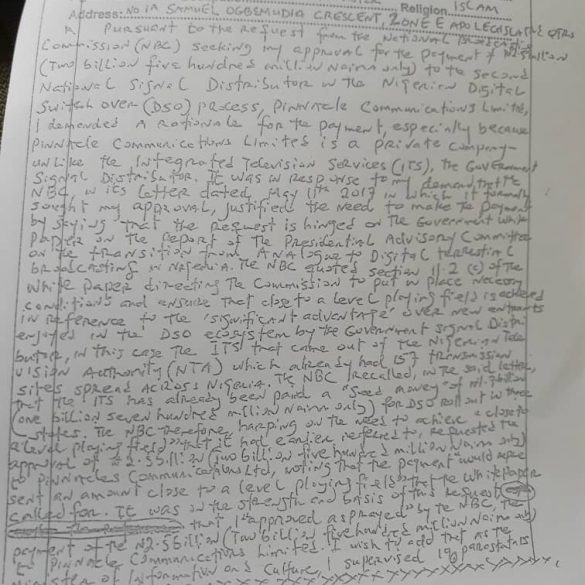 Address: NO 1A SAMUEL OGBEMUDIA CRESCENT, ZONE E APO LEGISLATIVE QTRS Religion ISLAM
Pursuant to the request from the National Broadcasting
Commission (NBC) seeking my approval for the payment of N2.5billion
(Two billion five hundred million Naira only) to the second
National Signal Distributor in the Nigerian Digital
Switch Over (DSO) process, Pinnacle Communications Limited,
I demanded a rationale for the payment, especially because
Pinnacle Communications Limited is a private company
unlike the Integrated Television Services (ITS), the Government
Signal Distributor. It was in response to my demand, that the
NBC, in its letter dated, May 11th 2017 in which it formally
sought my approval, justified the need to make the payment
by saying that the request is hinged on the Government white
paper on the report of the Presidential Advisory Committee
on the transition from Analogue to Digital terrestrial
broadcasting in Nigeria. The NBC quoted section 11.2 (c) of the
white paper directing the Commission to put in place necessary
conditions and ensure that close to a level playing field is achieved
in reference to the "significant advantage" over new entrants
enjoyed in the DSO ecosystem by the Government Signal Distri
butor, in this case the ITS that came out of the Nigerian Tele
vision Authority (NTA) which already had 157 transmission
sites spread across Nigeria. The NBC recalled, in the said letter,
that the ITS has already been paid a "seed money" of N1.7billion
(one billion seven hundred million Naira only) for DSO roll out in three
states. The NBC therefore, harping on the need to achieve "a close to
a level playing field" that it had earlier referred to, requested the
approval of N2.5billion (Two billion five hundred million Naira only)
to Pinnacles Communications Ltd, noting that the payment "would repre
sent an amount close to a level playing field" that the white paper
called for. It was on the strength and basis of this request
by the NBC, that I "approved as prayed" the
payment of the N2.5billion (Two billion five hundred million Naira only)
to Pinnacle Communications Limited. I wish to add that as the
Minister of Information and Culture, I supervised 19 parastatals